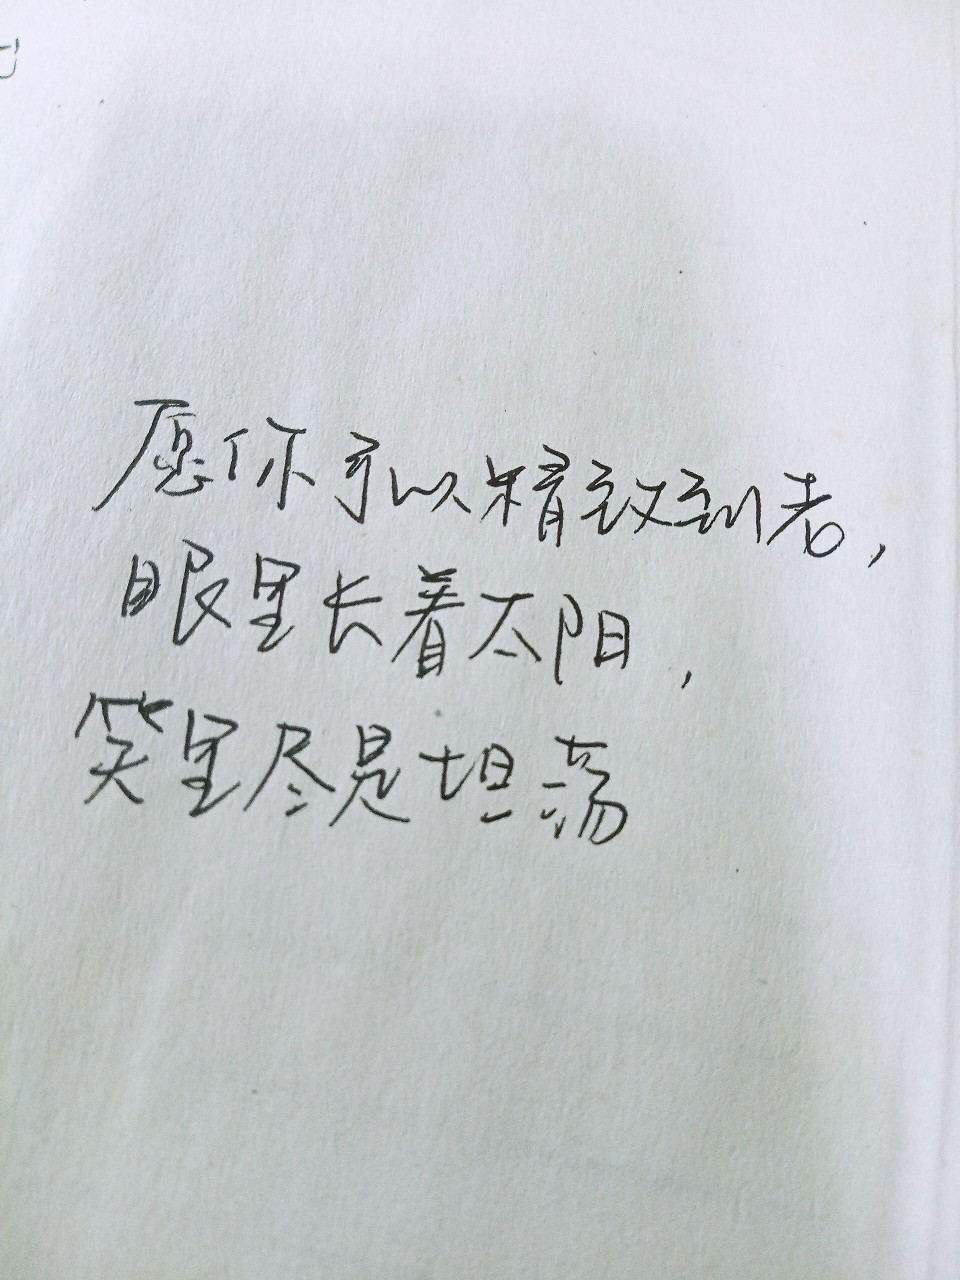 愿你可以精致到老，
眼里长着太阳，
笑里尽是坦荡